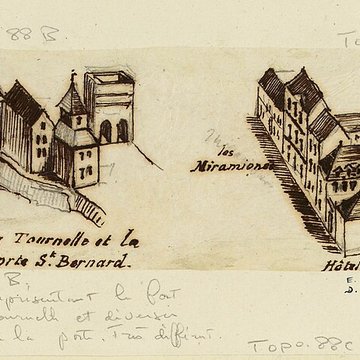 88 B.
To
les
Miramiones
Tournelle et la
orte St. Bernard.
Hôtel
E.
D.
B.
eprésentant le fort
ournelle et diverses
la porte. Très différent.
Topo. 88 C